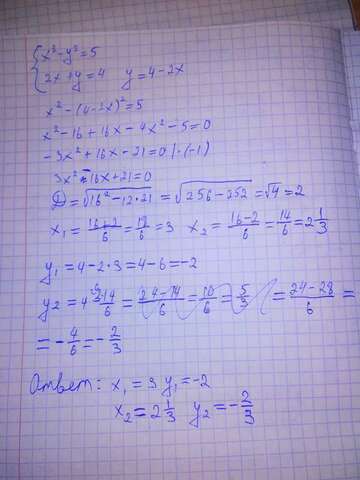 x² - y² = 5
2x + y = 4   y = 4 - 2x
x² - (4 - 2x)² = 5
x² - 16 + 16x - 4x² - 5 = 0
-3x² + 16x - 21 = 0 | · (-1)
3x² - 16x + 21 = 0
D = √16² - 12·21 = √256 - 252 = √4 = 2
x₁ = 16+2/6 = 18/6 = 3   x₂ = 16-2/6 = 14/6 = 2 1/3
y₁ = 4 - 2·3 = 4 - 6 = -2
y₂ = 4 - 2·14/6 = 24-14/6 = 10/6 = 5/3 = 24-28/6 =
= -4/6 = -2/3
Ответ: x₁ = 3 y₁ = -2
x₂ = 2 1/3   y₂ = -2/3